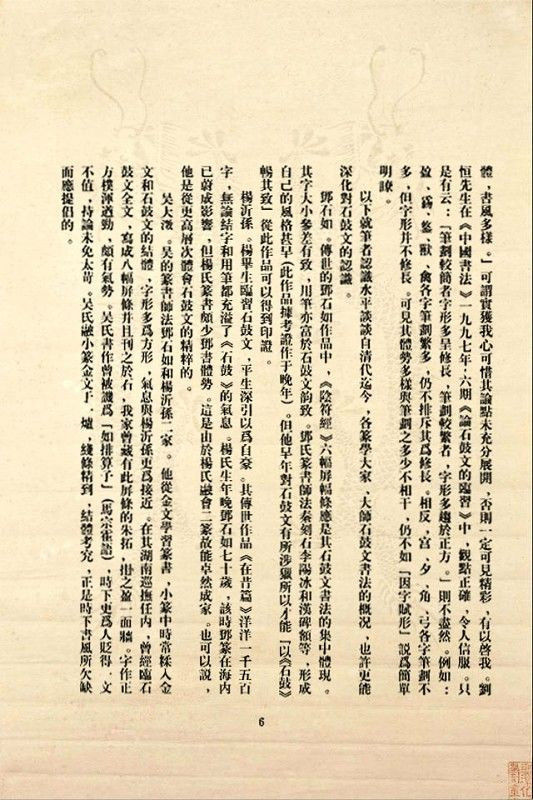 體，書風多樣。」可謂實獲我心可惜其論點未充分展開，否則一定可見精彩，有以啓我。劉
恒先生在《中國書法》一九九七年，六期《論石鼓文的臨習》中，觀點正確，令人信服。只
是有云：「筆劃較簡者字形多呈修長，筆劃較繁者，字形多趨於正方。」則不盡然。例如：
盈、獸、禽各字筆劃繁多，仍不排斥其爲修長。相反，宫、夕、角、弓各字筆劃不
多，但字形并不修長。可見其體勢多樣與筆劃之多少不相干，仍不如「因字賦形」説爲簡單
明諒。
以下就筆者認識水平談談自清代迄今，各篆學大家、大師石鼓文書法的概況，也許更能
深化對石鼓文的認識。
鄧石如。傳世的鄧石如作品中，《陰符經》六幅屏幅條應是其石鼓文書法的集中體現。
其字大小參差有致，用筆亦富於石鼓文韵致。鄧氏篆書師法秦刻石李陽冰和漢碑額等，形成
自己的風格甚早（此作品據考證作于晚年）。但他早年對石鼓文有所涉獵所以才能「以《石鼓》
暢其致」從此作品可以得到印證。
楊沂孫。楊畢生臨習石鼓文，平生深引以爲自豪。其傳世作品《在昔篇》洋洋一千五百
字，無論結字和用筆都充溢了《石鼓》的氣息。楊氏生年晚鄧石如七十歲，該時鄧篆在海内
已蔚成影響，但楊氏篆書頗少鄧書體勢。這是由於楊氏融會二篆故能卓然成家。也可以説，
他是從更高層次體會石鼓文的精粹的。
吴大澂。吴的篆書師法鄧石如和楊沂孫二家。他從金文學習篆書，小篆中時常糅入金
文和石鼓文的結體，字形多爲方形，氣息與楊沂孫更爲接近。在其湖南巡撫任内，曾經臨石
鼓文全文，寫成八幅屏條并且刊之於石，我家曾藏有此屏條的朱拓，掛之盈一面牆。字作正
方樸渾遒勁，頗有氣勢。吴氏書作曾被譏爲「如排算子」（馬宗霍語），時下更爲人貶得一文
不值，持論未免太苛。吴氏融小篆金文于一爐，綫條精到，結體考究，正是時下書風所欠缺
而應提倡的。
6